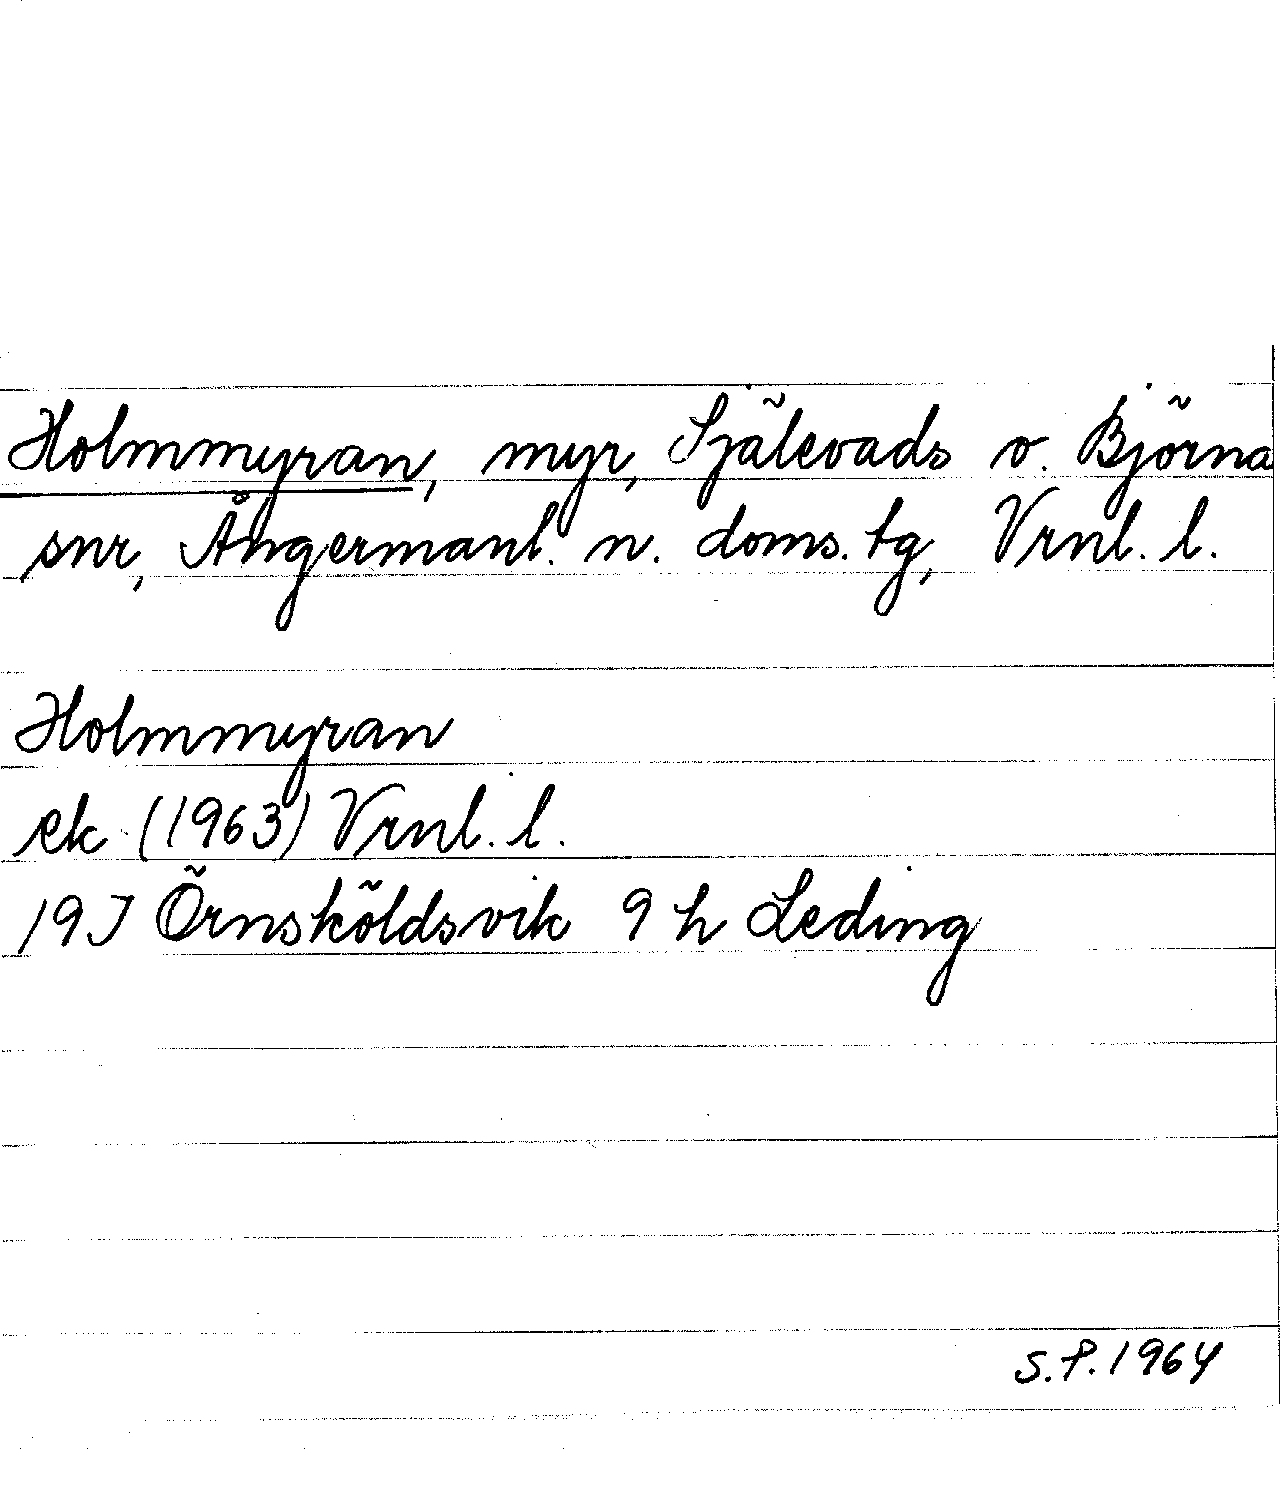 Holmmyran, myr, Själevads o. Björna
snr, Ångermanl. n. doms. tg, Vrnl. l.
Holmmyran
ek (1963) Vrnl. l.
19J Örnsköldsvik 9 h Leding
S.P. 1964